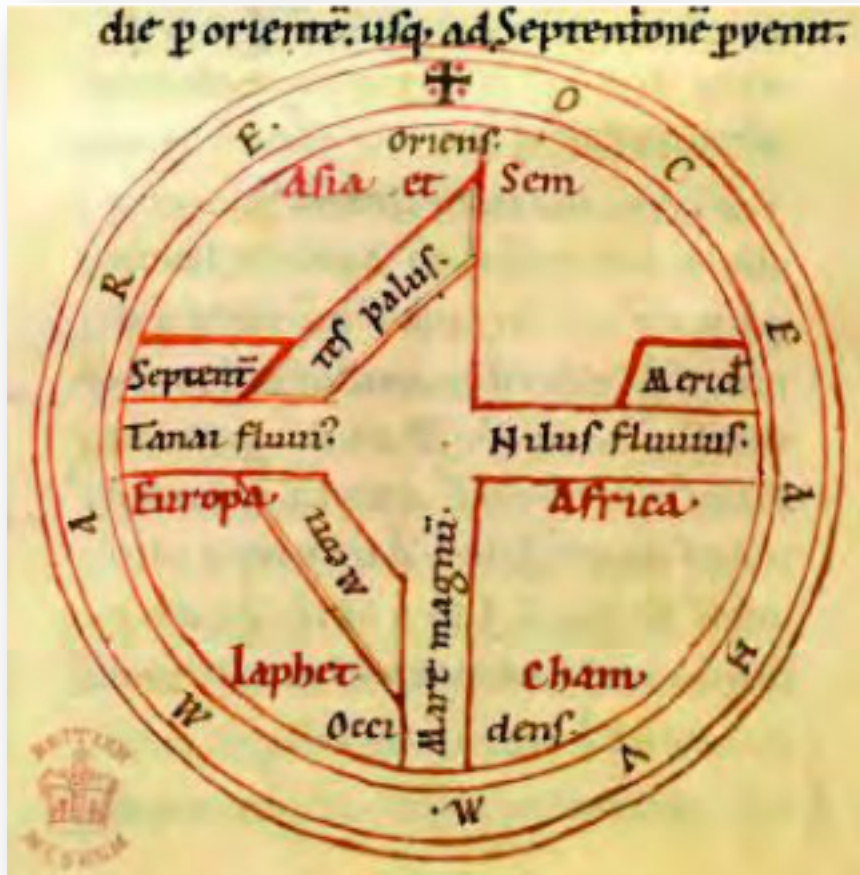 die p orientē. usq. ad Septentionē pvenit.
MARE. OCEANVM.
Oriens.
Asia et Sem
tes palus.
Septent̄
Merid
Tanai fluui?
Nilus fluuius.
Europa
Africa.
Meoti
Mare magnū
Iaphet
Cham
Occi dens.
BRITISH MUSEUM